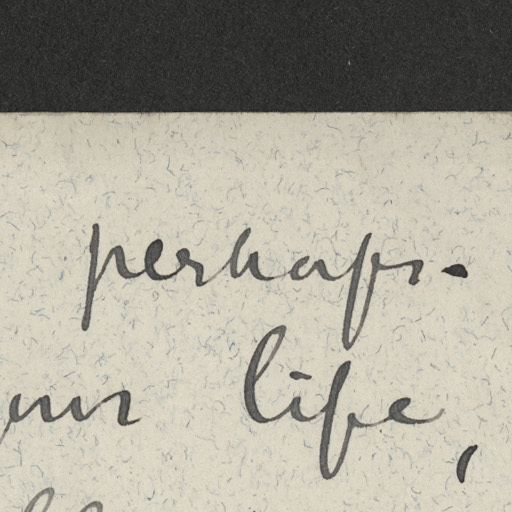 perhaps.
life,